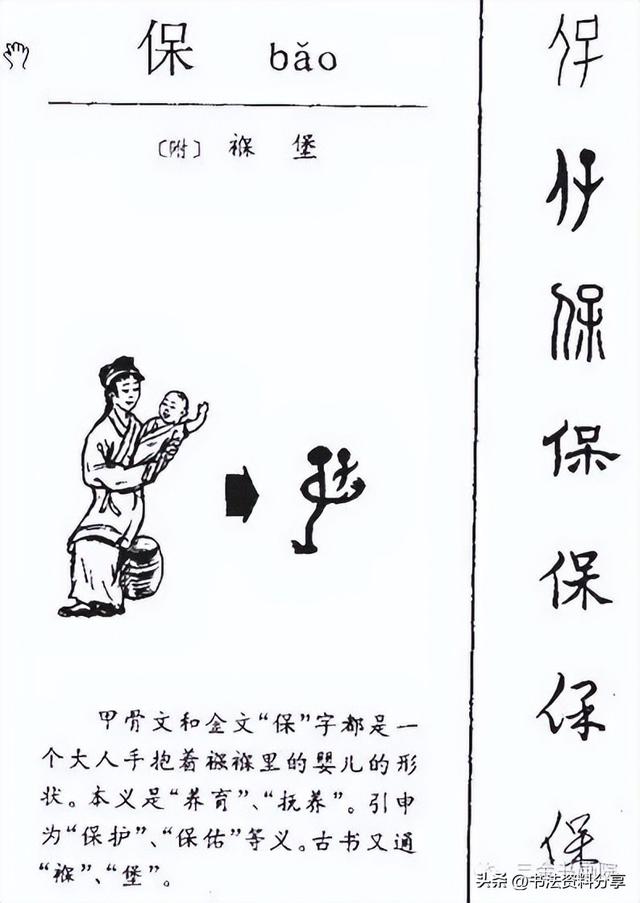 保 bǎo
〔附〕 褓 堡
甲骨文和金文“保”字都是一
个大人手抱着襁褓里的婴儿的形
状。本义是“养育”、“抚养”。引申
为“保护”、“保佑”等义。古书又通
“褓”、“堡”。
保
保
保
保
保
头条 @书法资料分享